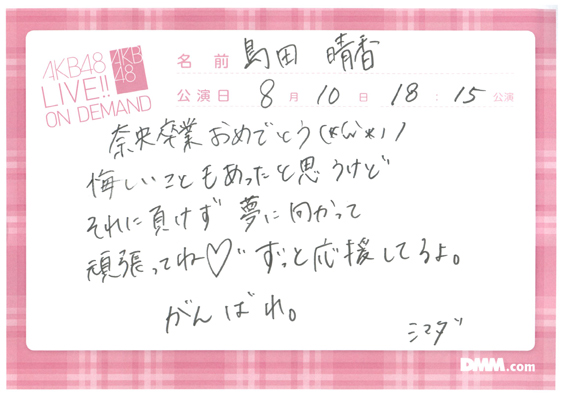 AKB48
LIVE!!
ON DEMAND
AKB
48
名前 島田 晴香
公演日 8月10日 18:15公演
奈央卒業おめでとう(*´ω`*)ノ
悔しいこともあったと思うけど
それに負けず 夢に向かって
頑張ってね♡ずっと応援してるよ。
がんばれ。
シマダ
DMM.com